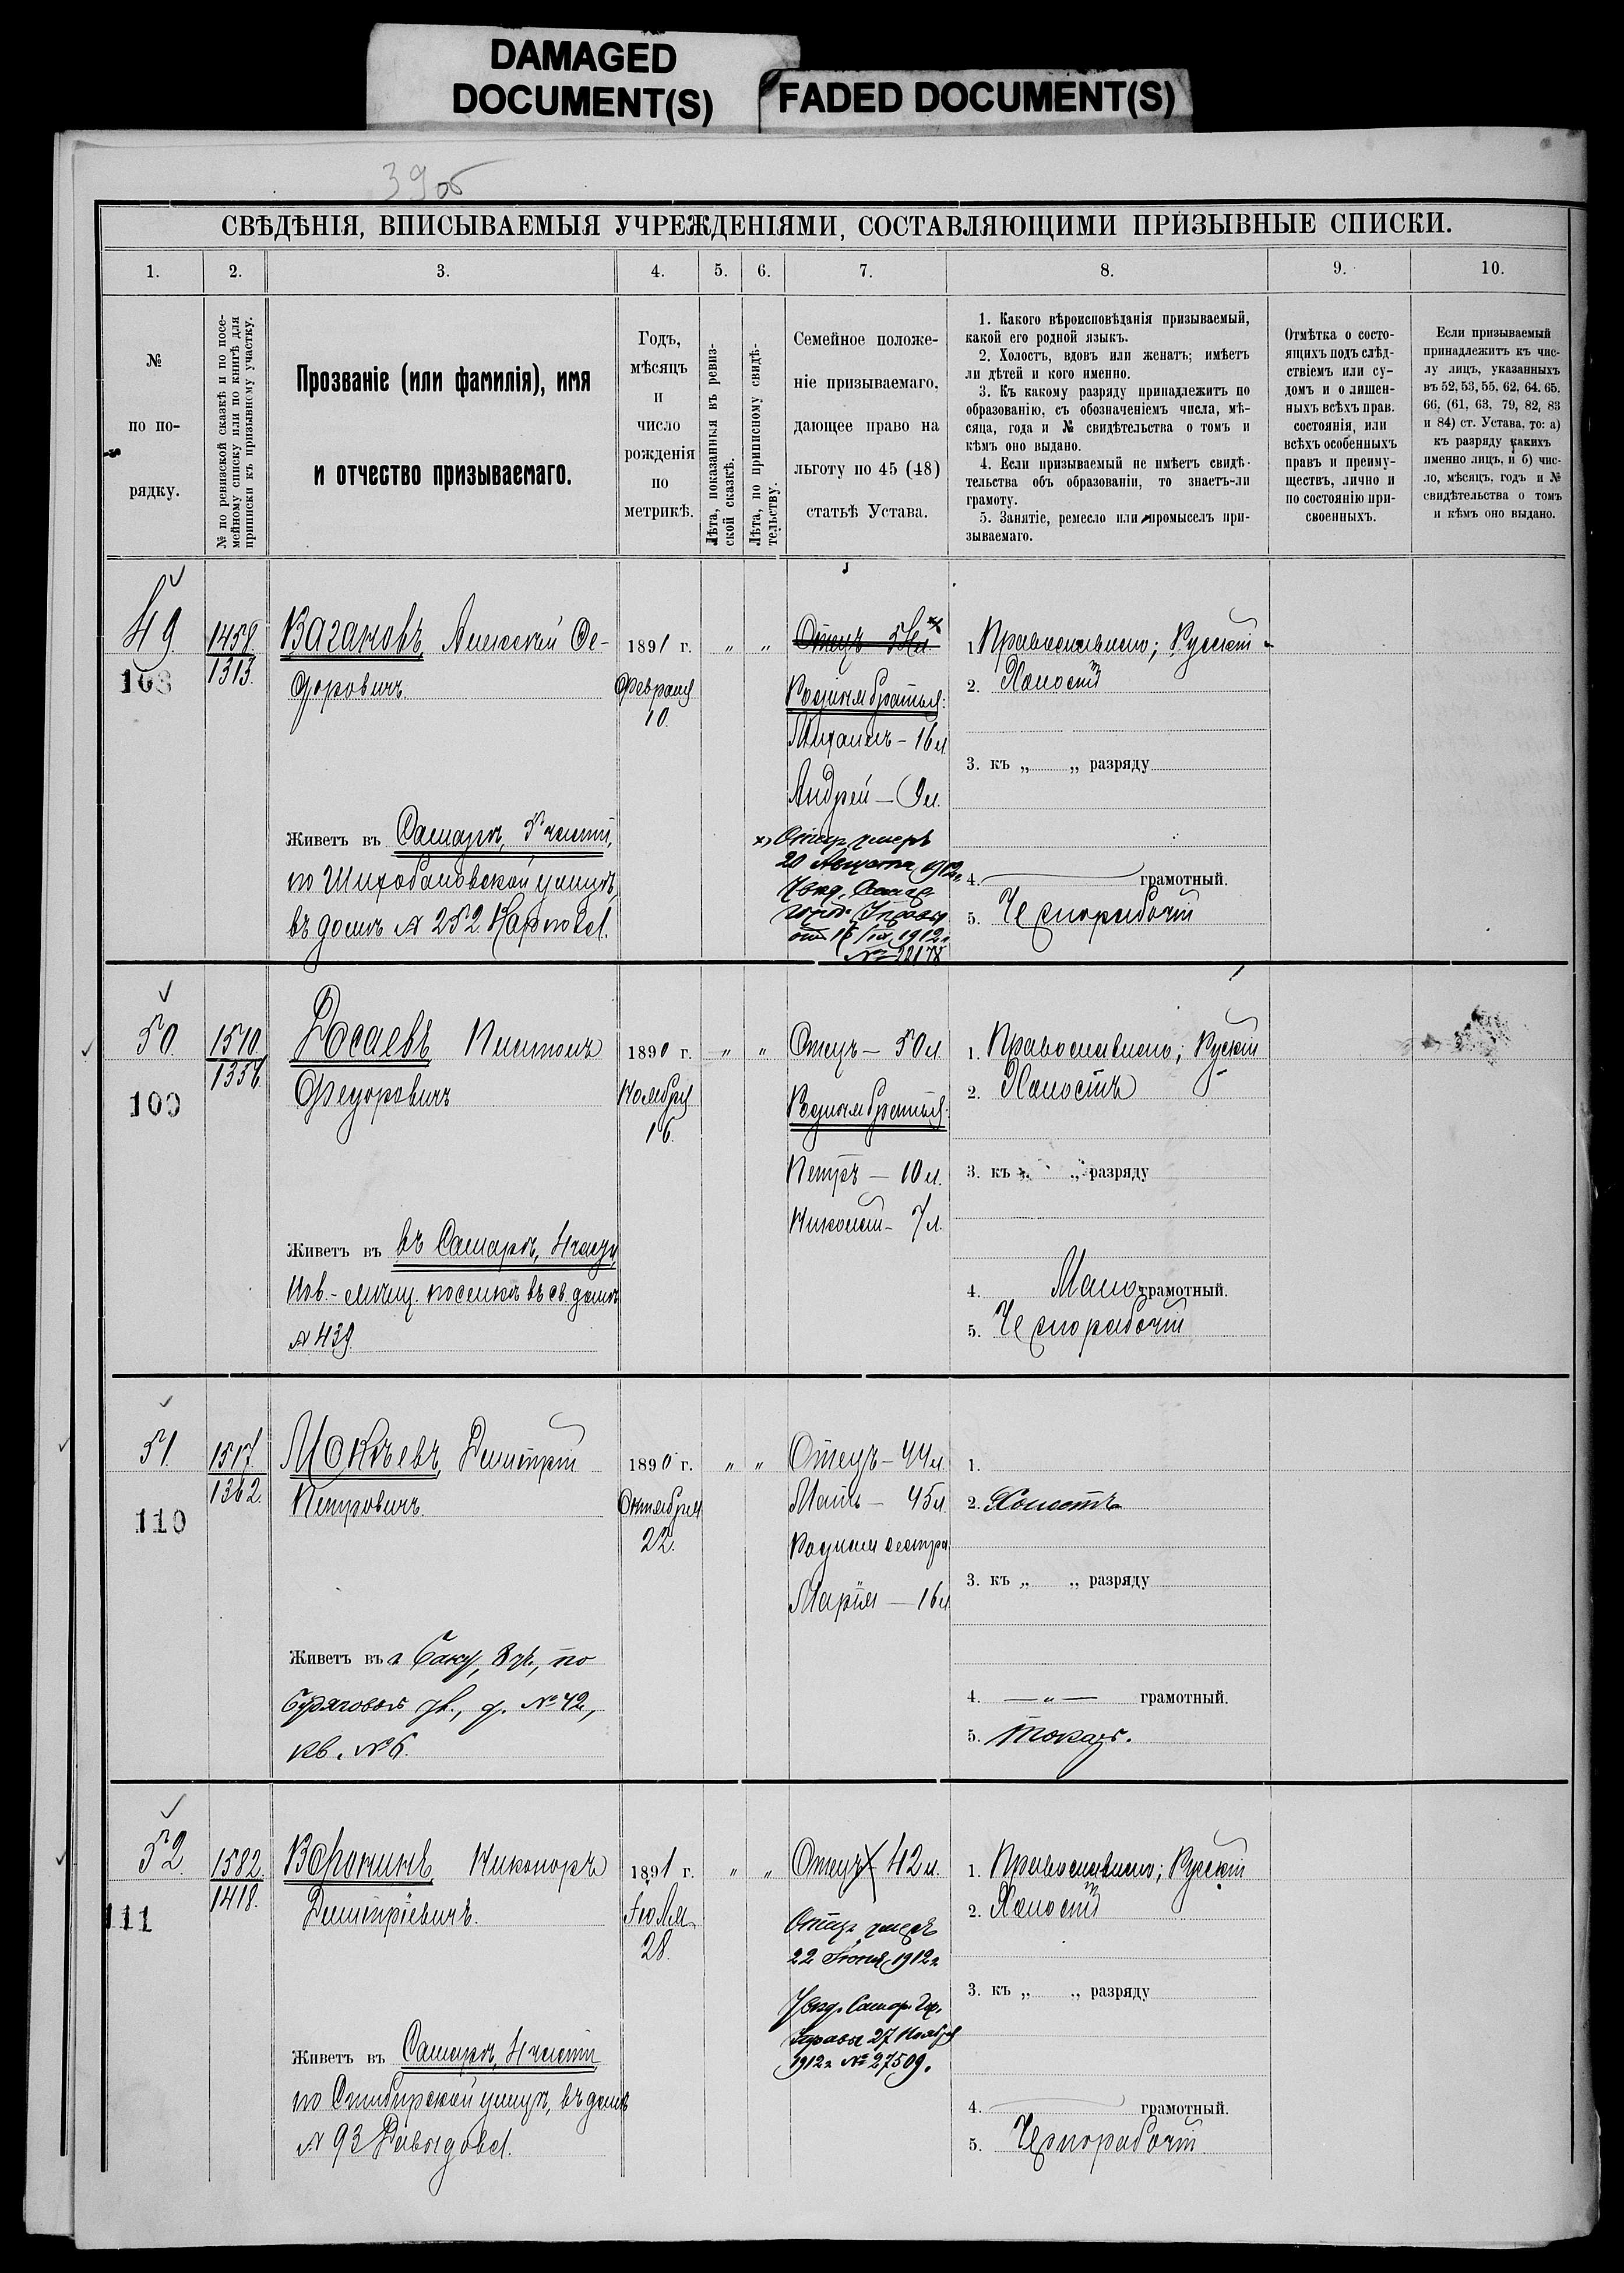 DAMAGED
DOCUMENT(S)
FADED DOCUMENT(S)
39об
СВѢДѢНІЯ, ВПИСЫВАЕМЫЯ УЧРЕЖДЕНІЯМИ, СОСТАВЛЯЮЩИМИ ПРИЗЫВНЫЕ СПИСКИ.
1.
2.
3.
4.
5.
6.
7.
8.
9.
10.
№
по по-
рядку.
№ по ревизской сказкѣ и по посе-
мейному списку или по книгѣ для
приписки къ призывному участку.
Прозваніе (или фамилія), имя
и отчество призываемаго.
Годъ,
мѣсяцъ
и
число
рожденія
по
метрикѣ.
Лѣта, показанныя въ ревиз-
ской сказкѣ.
Лѣта, по приписному свидѣ-
тельству.
Семейное положе-
ніе призываемаго,
дающее право на
льготу по 45 (48)
статьѣ Устава.
1. Какого вѣроисповѣданія призываемый,
какой его родной языкъ.
2. Холостъ, вдовъ или женатъ; имѣетъ
ли дѣтей и кого именно.
3. Къ какому разряду принадлежитъ по
образованію, съ обозначеніемъ числа, мѣ-
сяца, года и № свидѣтельства о томъ и
кѣмъ оно выдано.
4. Если призываемый не имѣетъ свидѣ-
тельства объ образованіи, то знаетъ-ли
грамоту.
5. Занятіе, ремесло или промыселъ при-
зываемаго.
Отмѣтка о состо-
ящихъ подъ слѣд-
ствіемъ или су-
домъ и о лишен-
ныхъ всѣхъ прав.
состоянія, или
всѣхъ особенныхъ
правъ и преиму-
ществъ, лично и
по состоянію при-
своенныхъ.
Если призываемый
принадлежитъ къ чис-
лу лицъ, указанныхъ
въ 52, 53, 55, 62, 64. 65.
66, (61, 63, 79, 82, 83
и 84) ст. Устава, то: а)
къ разряду какихъ
именно лицъ, и б) чис-
ло, мѣсяцъ, годъ и №
свидѣтельства о томъ
и кѣмъ оно выдано.
49.
108
1459.
1313.
Вагановъ, Алексѣй Ѳе-
доровичъ
Живетъ въ Самарѣ, 5 части,
по Шихобаловской улицѣ,
въ домѣ № 252 Карпова.
1891 г.
Февраля
10.
„ „
Отецъ
Родные братья:
Михаилъ - 16 л.
Андрей - 9 л.
х) Отец умеръ
20 Августа 1912 г.
город. Управы
1912 г.
№ 22178
1. Православнаго; Русскій
2. Холостъ
3. къ „ „ разряду
4. грамотный.
5. Чернорабочій
50.
109
1510
1356
Досаевъ Платонъ
Федоровичъ
Живетъ въ въ Самарѣ, 4 части,
№ 439.
1890 г.
Ноября
16.
„ „
Отецъ - 50 л.
Родные братья:
Петръ - 10 л.
Николай - 7 л.
1. Православнаго; Русскій
2. Холостъ
3. къ „ „ разряду
4. Мало грамотный.
5. Чернорабочій
51.
110
1517.
1362.
Мокѣевъ, Дмитрій
Петровичъ.
Живетъ въ г. Баку, 8 уч., по
д. № 42,
кв. № 6.
1890 г.
Октября
22.
„ „
Отецъ - 44 л.
Мать - 45 л.
Родная сестра
Марія - 16 л.
1.
2. Холостъ
3. къ „ „ разряду
4. — „ — грамотный.
5. токарь.
52.
111
1582.
1418.
Воронинъ, Никоноръ
Дмитріевичъ.
Живетъ въ Самарѣ, 4 части
по Симбирской улицѣ, въ домѣ
№ 93 Давыдова.
1891 г.
Іюля
28.
„ „
Отецъ - 42 л.
Отец умеръ
22 Іюня 1912 г.
Увѣд. Самар. Гор.
Управы 27 Ноября
1912 г. № 27509.
1. Православнаго; Русскій
2. Холостъ
3. къ „ „ разряду
4. грамотный.
5. Чернорабочій